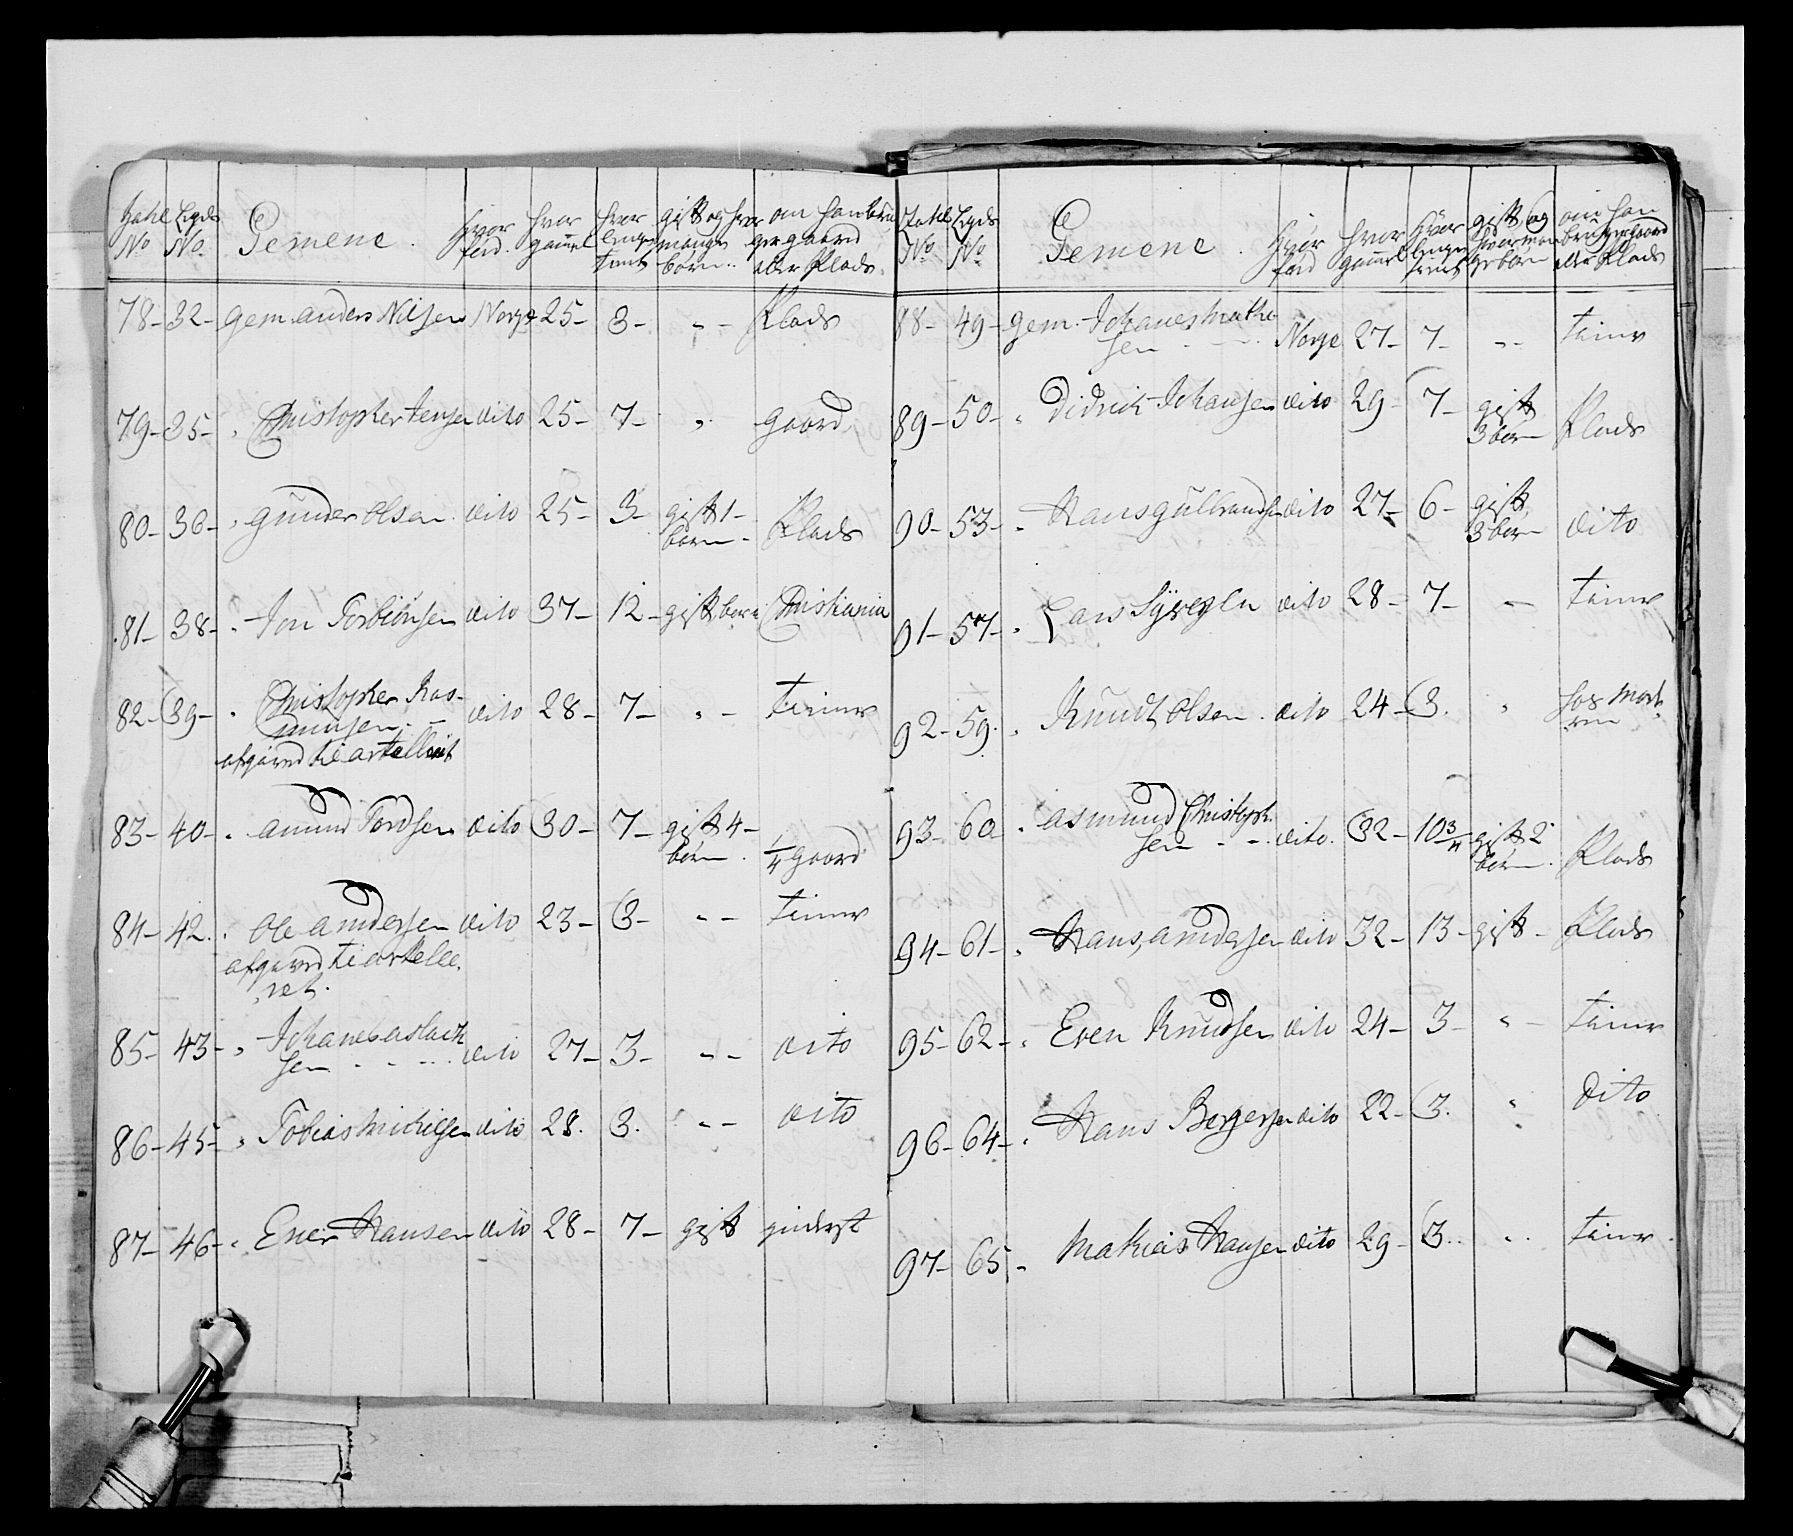 Tahl No | Legds No | Gemene. | Hvor fød. | Hvor gamel | Hvor lenge tient | gift og hvor mange børn.. | om han bru ger gaard eller Plads.
78- | 32- | gem. anders Nilsen | Norge | 25- | 3- | " - | Plads
79- | 35- | " Christopher Jensen | dito | 25- | 7- | " | gaard
80- | 36- | " gunder Olsen | dito | 25- | 3- | gift 1- børn - | Plads
81- | 38- | " Jon Torbiønsen | dito | 37- | 12- | gift børn | Christiania
82- | 39- | " Christopher Ras- musen - | dito | 28- | 7- | " - | tiener
afgaaed til artelleriet
83- | 40- | " amund Tordsen | dito | 30- | 7- | gift 4- børn. | 1/4 gaard
84- | 42. | " Ole andersen | dito | 23- | 3- | " - | tiener
afgaaed til artelle
riet.
85- | 43- | " Johanes aslack sen - - - | dito | 27- | 3- | " - | dito
86- | 45- | " Tobias Mickelsen | dito | 28. | 3. | " - | dito
87- | 46- | " Ener Hansen | dito | 28- | 7- | gift | inderst
Tahl No | Legds No | Gemene. | Hvor fød | Hvor gamel | Hvor lenge tient | gift og hvor man ge børn | om han bruger gaard eller Plads
88- | 49- | gem. Johanes Mathi sen - - - | Norge | 27- | 7- | " - | tiener
89- | 50- | " Didrik Johansen | dito | 29- | 7- | gift 3 børn | Plads
90- | 53- | " Hans gulbrandsen | dito | 27- | 6- | gift 3 børn | dito
91- | 57- | " Lars | dito | 28- | 7- | - | tiener
92- | 59. | " Knudt Olsen. | dito | 24- | 3. | " | hos
93- | 60 | " asmund Christoph. sen - - | dito. | 32- | 10 3/4 | gift 2 børn. | Plads
94- | 61- | " Hans andersen | dito | 32- | 13- | gift - | Plads
95- | 62- | " Even Knudsen | dito | 24- | 3- | " - | tiener
96- | 64- | " Hans Bergersen | dito | 22- | 3. | " | dito
97- | 65 | - Mathias Hansen | dito | 29- | 3.. | " . | tiener